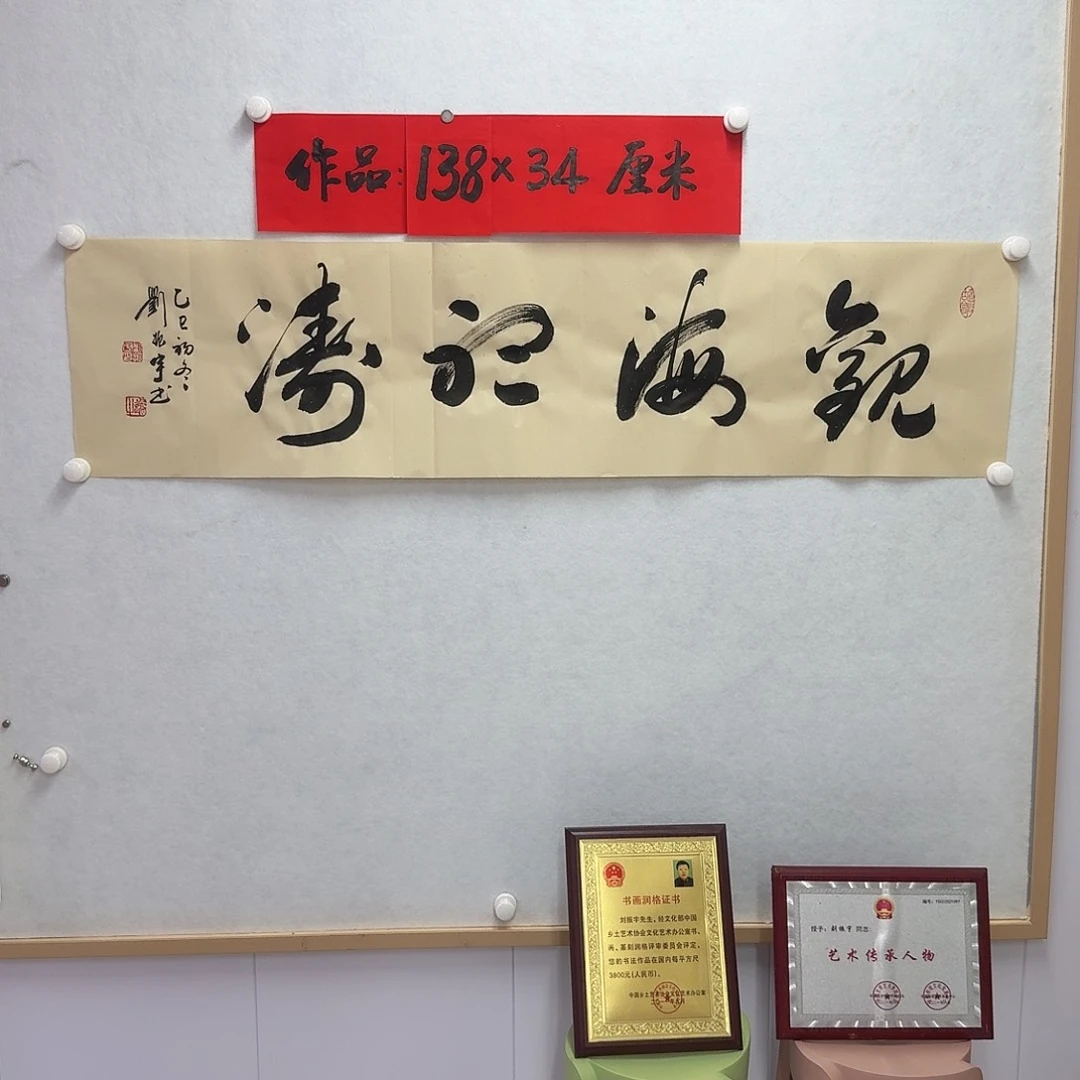 作品:138×34厘米
觀海聽濤
乙巳初冬
劉振宇书
书画润格证书
刘振宇先生,经文化部中国
乡土艺术协会文化艺术办公室书、
画、篆刻润格评审委员会评定,
您的书法作品在国内每平方尺
3800元(人民币)。
中国乡土艺术协会文化艺术办公室
编号:
授予:刘振宇 同志
艺术传承人物